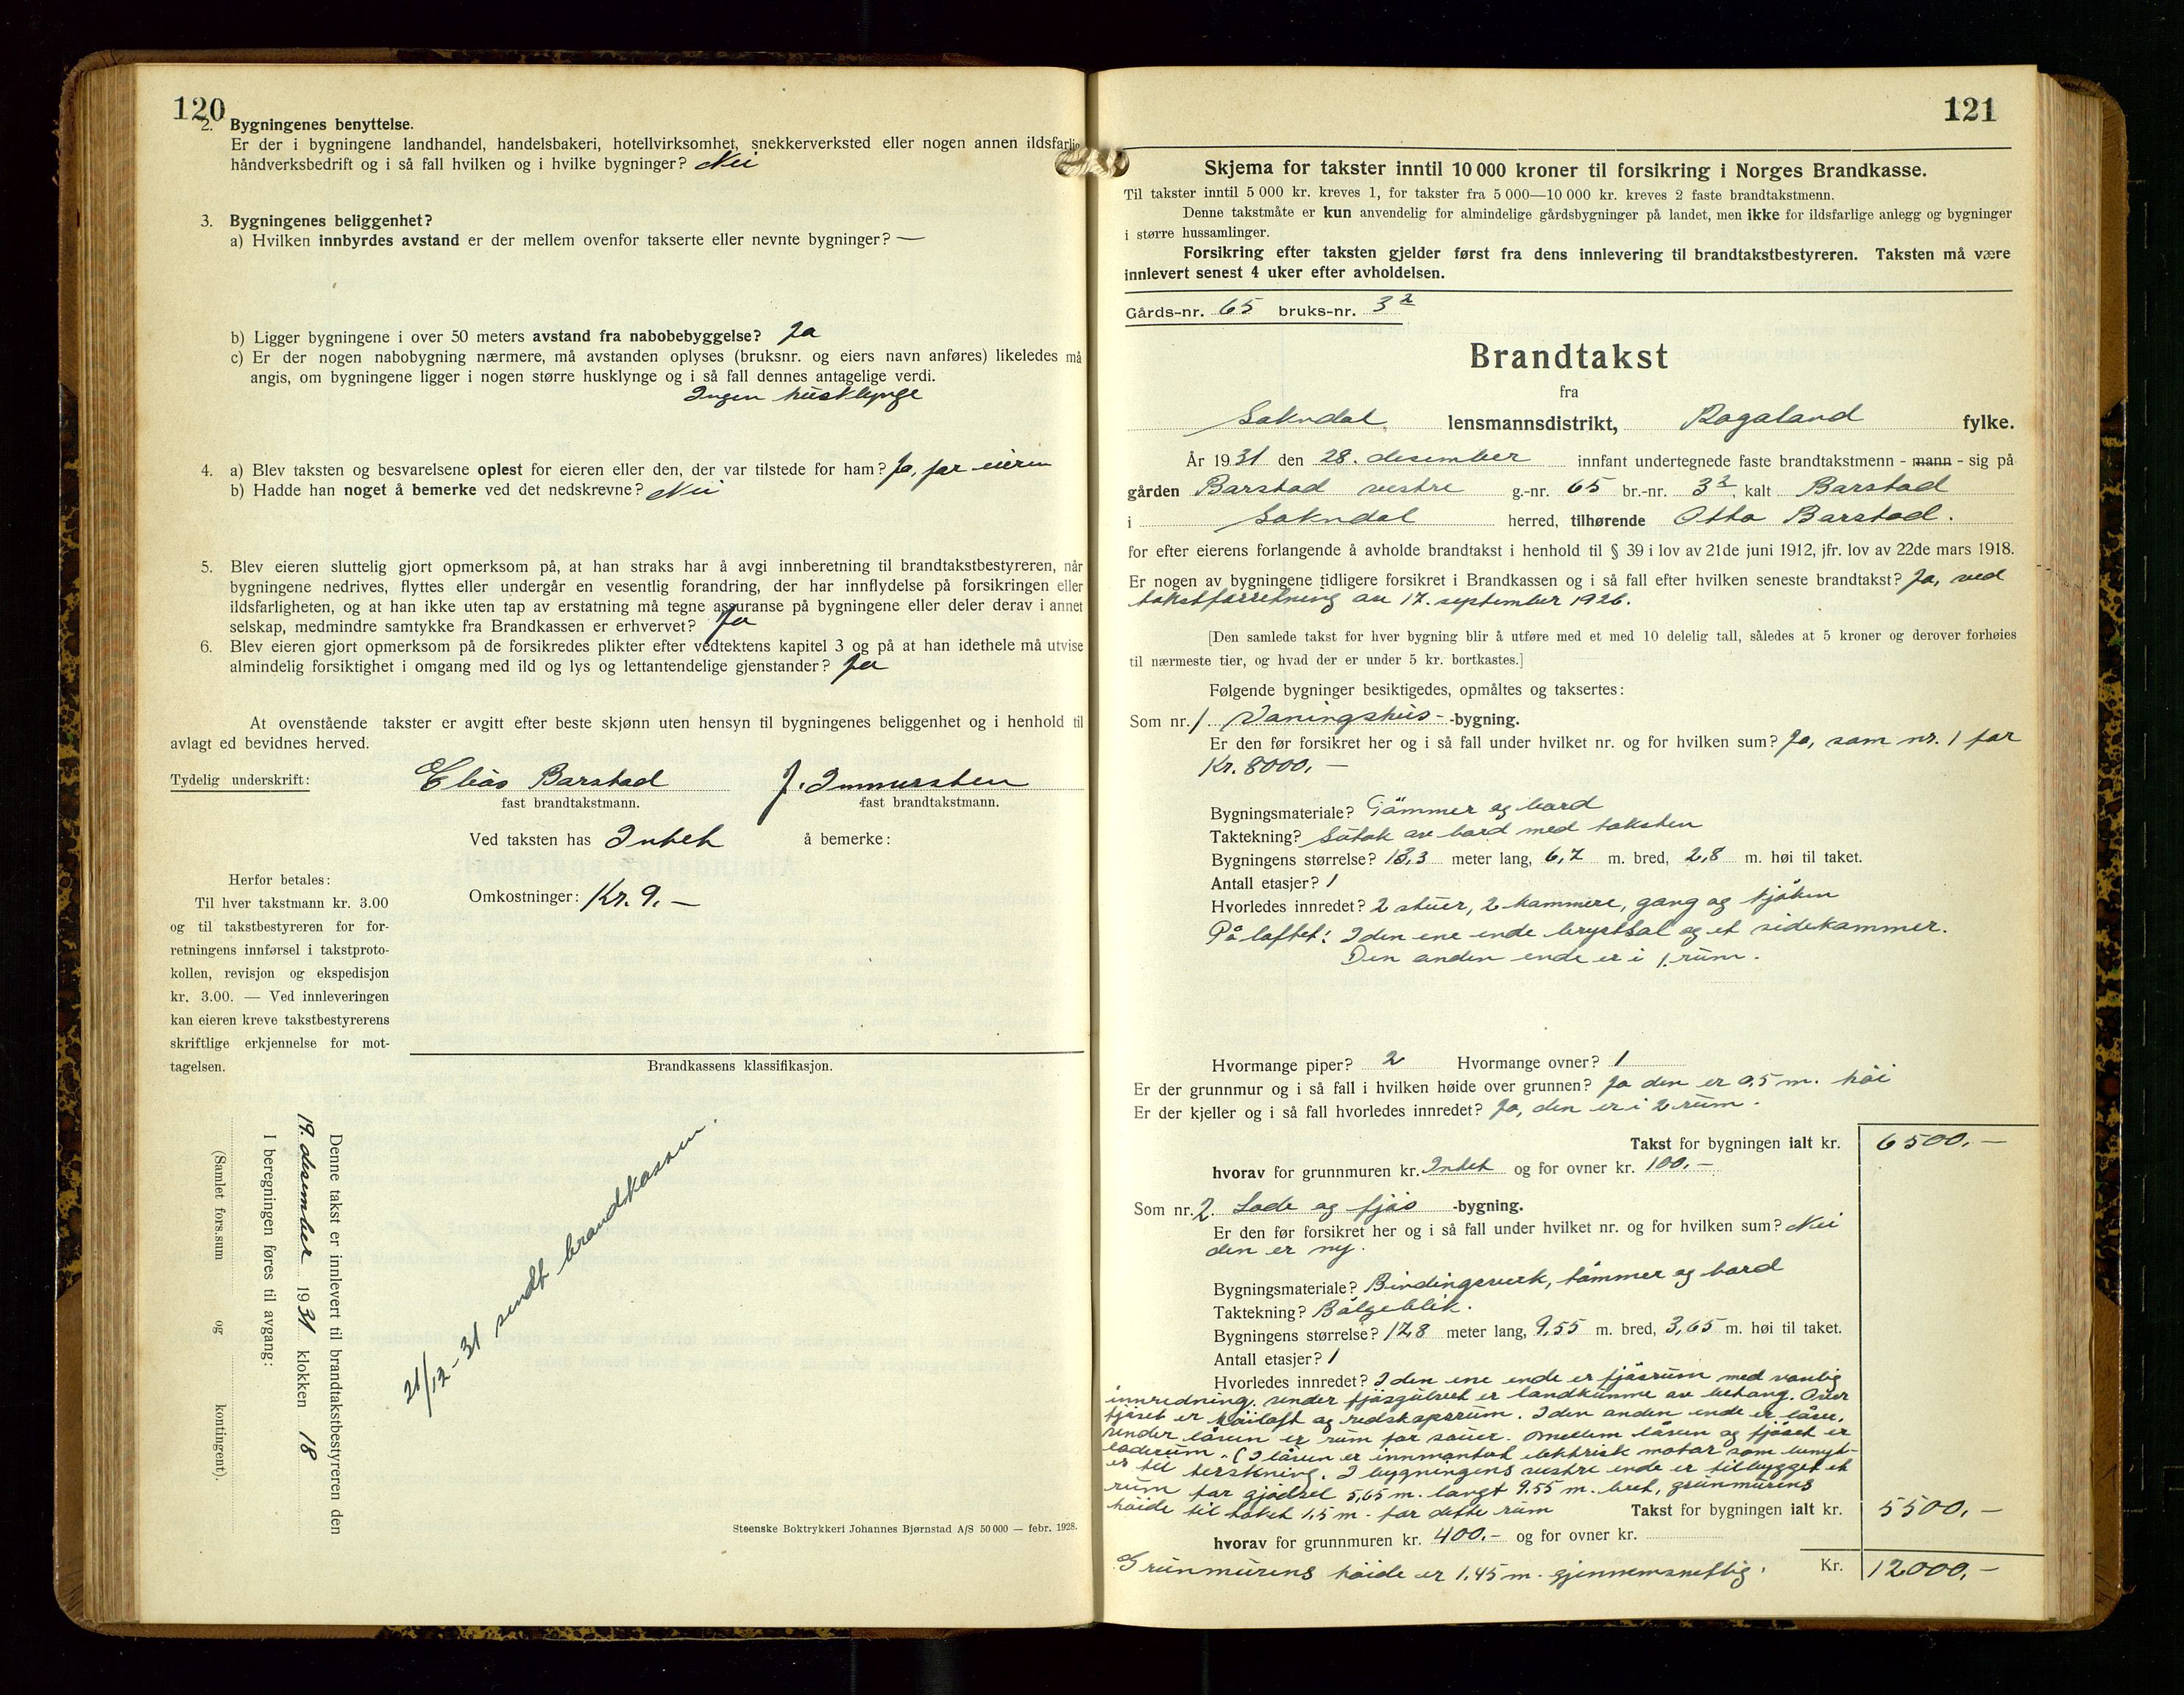 120
2. Bygningenes benyttelse.
Er der i bygningene landhandel, handelsbakeri, hotellvirksomhet, snekkerverksted eller nogen annen ildsfarlig
håndverksbedrift og i så fall hvilken og i hvilke bygninger? Nei
3. Bygningenes beliggenhet?
a) Hvilken innbyrdes avstand er der mellem ovenfor takserte eller nevnte bygninger? —
b) Ligger bygningene i over 50 meters avstand fra nabobebyggelse? Ja
c) Er der nogen nabobygning nærmere, må avstanden oplyses (bruksnr. og eiers navn anføres) likeledes må
angis, om bygningene ligger i nogen større husklynge og i så fall dennes antagelige verdi.
Ingen husklynge
4. a) Blev taksten og besvarelsene oplest for eieren eller den, der var tilstede for ham? Ja, for eieren
b) Hadde han noget å bemerke ved det nedskrevne? Nei
5. Blev eieren sluttelig gjort opmerksom på, at han straks har å avgi innberetning til brandtakstbestyreren, når
bygningene nedrives, flyttes eller undergår en vesentlig forandring, der har innflydelse på forsikringen eller
ildsfarligheten, og at han ikke uten tap av erstatning må tegne assuranse på bygningene eller deler derav i annet
selskap, medmindre samtykke fra Brandkassen er erhvervet? Ja
6. Blev eieren gjort opmerksom på de forsikredes plikter efter vedtektens kapitel 3 og på at han idethele må utvise
almindelig forsiktighet i omgang med ild og lys og lettantendelige gjenstander? Ja
At ovenstående takster er avgitt efter beste skjønn uten hensyn til bygningenes beliggenhet og i henhold til
avlagt ed bevidnes herved.
Tydelig underskrift: Elias Barstad J. Immersten
fast brandtakstmann. fast brandtakstmann.
Ved taksten has Intet å bemerke:
Omkostninger: Kr. 9. —
Herfor betales:
Til hver takstmann kr. 3.00
og til takstbestyreren for for-
retningens innførsel i takstproto-
kollen, revisjon og ekspedisjon
kr. 3.00. — Ved innleveringen
kan eieren kreve takstbestyrerens
skriftlige erkjennelse for mot-
tagelsen.
Brandkassens klassifikasjon.
Denne takst er innlevert til brandtakstbestyreren den
19. desember 1931 klokken 18
I beregningen føres til avgang:
(Samlet fors.sum og kontingent).
21/12-31 sendt brandkassen.
Steenske Boktrykkeri Johannes Bjørnstad A/S 50 000 — febr. 1928.
121
Skjema for takster inntil 10 000 kroner til forsikring i Norges Brandkasse.
Til takster inntil 5 000 kr. kreves 1, for takster fra 5 000—10 000 kr. kreves 2 faste brandtakstmenn.
Denne takstmåte er kun anvendelig for almindelige gårdsbygninger på landet, men ikke for ildsfarlige anlegg og bygninger
i større hussamlinger.
Forsikring efter taksten gjelder først fra dens innlevering til brandtakstbestyreren. Taksten må være
innlevert senest 4 uker efter avholdelsen.
Gårds-nr. 65 bruks-nr. 3²
Brandtakst
fra
Sokndal lensmannsdistrikt, Rogaland fylke.
År 1931 den 28. desember innfant undertegnede faste brandtakstmenn - mann - sig på
gården Barstad vestre g.-nr. 65 br.-nr. 3², kalt Barstad
i Sokndal herred, tilhørende Otto Barstad.
for efter eierens forlangende å avholde brandtakst i henhold til § 39 i lov av 21de juni 1912, jfr. lov av 22de mars 1918.
Er nogen av bygningene tidligere forsikret i Brandkassen og i så fall efter hvilken seneste brandtakst? Ja, ved
takstforretning av 17. september 1926.
[Den samlede takst for hver bygning blir å utføre med et med 10 delelig tall, således at 5 kroner og derover forhøies
til nærmeste tier, og hvad der er under 5 kr. bortkastes.]
Følgende bygninger besiktigedes, opmåltes og taksertes:
Som nr. 1. Vaningshus- -bygning.
Er den før forsikret her og i så fall under hvilket nr. og for hvilken sum? Ja, som nr. 1 for
Kr. 8000. —
Bygningsmateriale? Tømmer og bord
Taktekning? Sutak av bord med taksten
Bygningens størrelse? 13,3 meter lang, 6,7 m. bred, 2,8 m. høi til taket.
Antall etasjer? 1
Hvorledes innredet? 2 stuer, 2 kammere, gang og kjøken
På loftet: I den ene ende brystsal og et sidekammer.
Den anden ende er i 1. rum.
Hvormange piper? 2 Hvormange ovner? 1
Er der grunnmur og i så fall i hvilken høide over grunnen? Ja den er 0,5 m. høi
Er der kjeller og i så fall hvorledes innredet? Ja, den er i 2 rum.
Takst for bygningen ialt kr. 6500. —
hvorav for grunnmuren kr. Intet og for ovner kr. 100. —
Som nr. 2. Lade og fjøs -bygning.
Er den før forsikret her og i så fall under hvilket nr. og for hvilken sum? Nei
den er ny.
Bygningsmateriale? Bindingsverk, tømmer og bord
Taktekning? Bølgeblik.
Bygningens størrelse? 17,8 meter lang, 9,55 m. bred, 3,65 m. høi til taket.
Antall etasjer? 1
Hvorledes innredet? I den ene ende er fjøsrum med vanlig
innredning, under fjøsgulvet er landkumme av betong. Over
fjøset er høiloft og redskapsrum. I den anden ende er låve,
under låven er rum for sauer. Mellem låven og fjøset er
laderum. (I låven er innmontert elektrisk motor som benyt-
er til terskning. I bygningens vestre ende er tilbygget et
rum for gjødsel 5,65 m. langt 9.55 m. bret, grunmurens
høide til taket 1,5 m. for dette rum Takst for bygningen ialt kr. 5500. —
hvorav for grunnmuren kr. 400. — og for ovner kr.
Grunmurens høide er 1.45 m. gjennemsnitlig. Kr. 12000. —